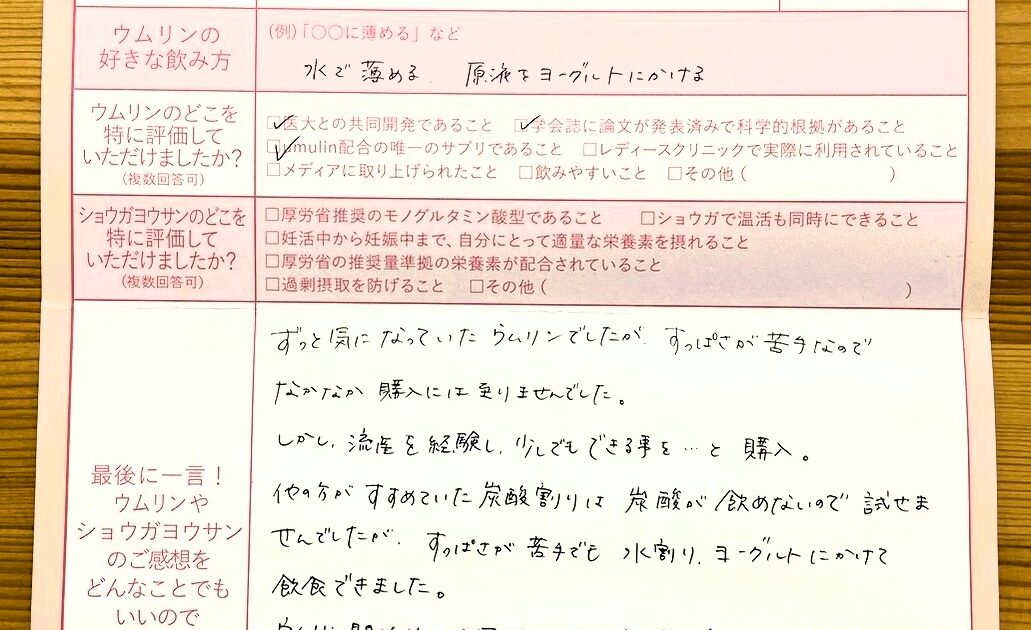 ウムリンの
好きな飲み方
(例)「○○に薄める」など
水で薄める 原液をヨーグルトにかける
ウムリンのどこを
特に評価して
いただけましたか?
(複数回答可)
☑医大との共同開発であること ☑学会誌に論文が発表済みで科学的根拠があること
☑umulin配合の唯一のサプリであること □レディースクリニックで実際に利用されていること
□メディアに取り上げられたこと □飲みやすいこと □その他( )
ショウガヨウサンのどこを
特に評価して
いただけましたか?
(複数回答可)
□厚労省推奨のモノグルタミン酸型であること □ショウガで温活も同時にできること
□妊活中から妊娠中まで、自分にとって適量な栄養素を摂れること
□厚労省の推奨量準拠の栄養素が配合されていること
□過剰摂取を防げること □その他( )
最後に一言!
ウムリンや
ショウガヨウサン
のご感想を
どんなことでも
いいので
ずっと気になっていたウムリンでしたが、すっぱさが苦手なので
なかなか購入には至りませんでした。
しかし、流産を経験し、少しでもできる事を…と購入。
他の方がすすめていた炭酸割りは炭酸が飲めないので試せま
せんでしたが、すっぱさが苦手でも水割り、ヨーグルトにかけて
飲食できました。